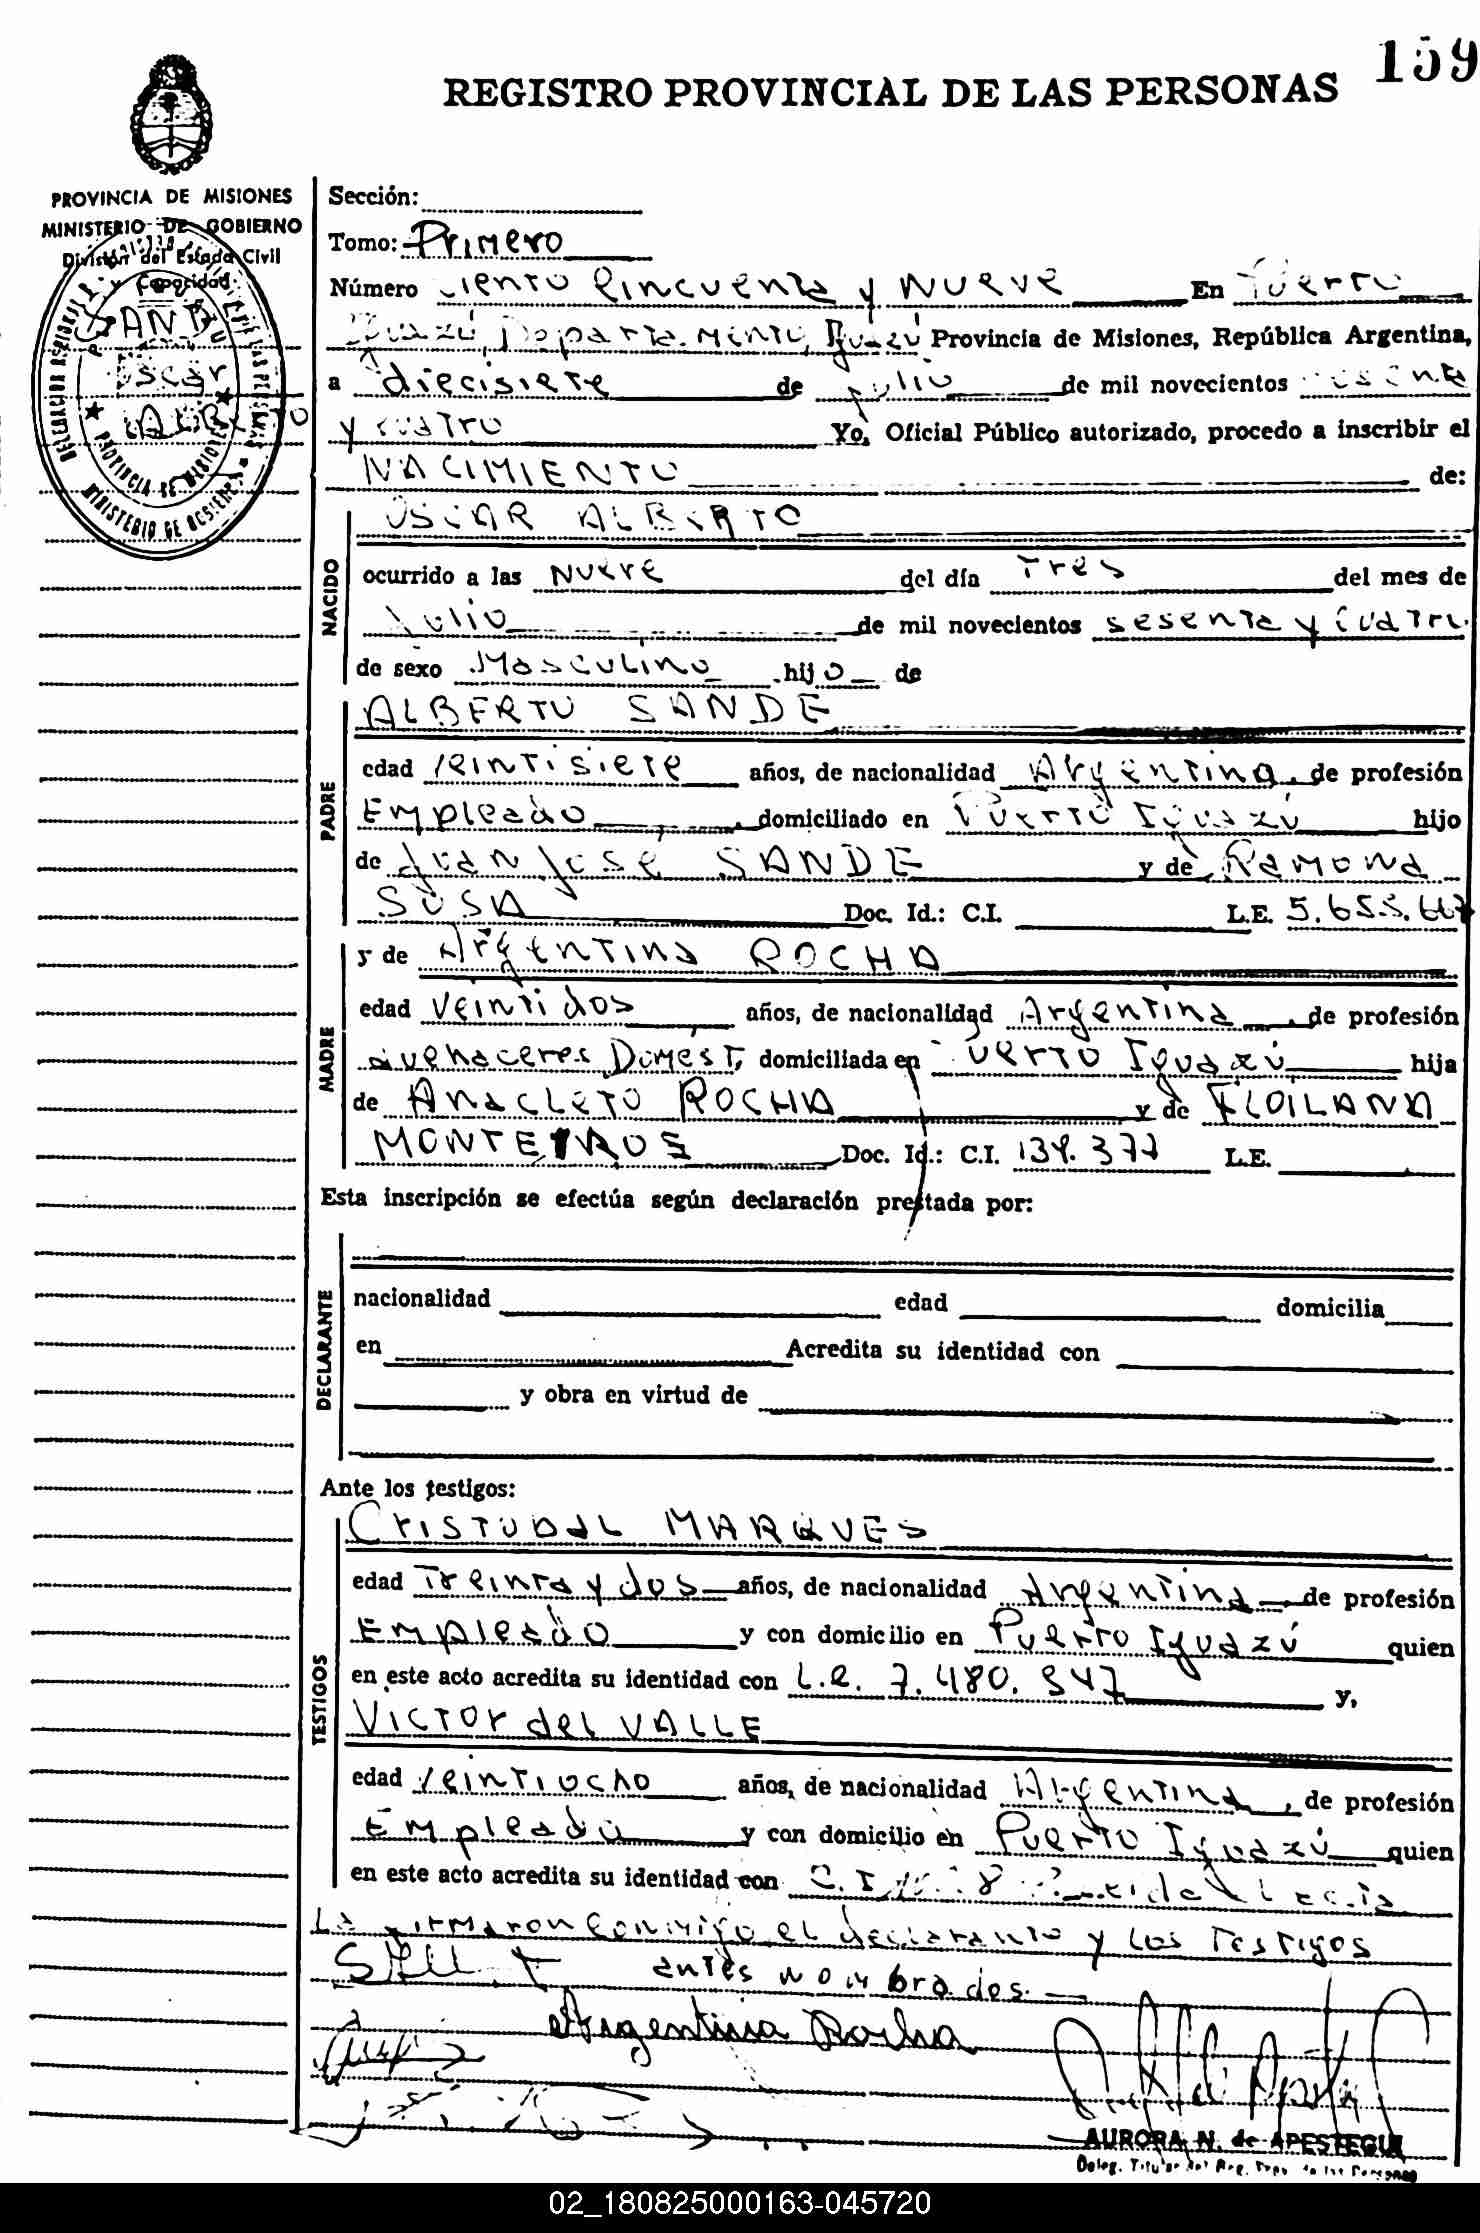 159
REGISTRO PROVINCIAL DE LAS PERSONAS
PROVINCIA DE MISIONES
MINISTERIO DE GOBIERNO
División del Estado Civil
y Capacidad
SANDE
Oscar
ALBERTO
Sección:
Tomo: Primero
Número ciento Cincuenta y Nueve En Puerto
Iguazú, Departamento, Iguazú Provincia de Misiones, República Argentina,
a diecisiete de julio de mil novecientos sesenta
y cuatro Yo, Oficial Público autorizado, procedo a inscribir el
NACIMIENTO de:
NACIDO
OSCAR ALBERTO
ocurrido a las Nueve del día Tres del mes de
Julio de mil novecientos sesenta y cuatro
de sexo Masculino hijo de
PADRE
ALBERTO SANDE
edad veintisiete años, de nacionalidad Argentina, de profesión
Empleado, domiciliado en Puerto Iguazú hijo
de Juan José SANDE y de Ramona
SOSA Doc. Id.: C.I. L.E. 5.655.667
MADRE
y de Argentina ROCHA
edad Veintidos años, de nacionalidad Argentina, de profesión
quehaceres Domést, domiciliada en Puerto Iguazú hija
de Anacleto ROCHA y de FLOILANA
MONTEIROS Doc. Id.: C.I. 139.377 L.E.
Esta inscripción se efectúa según declaración prestada por:
DECLARANTE
nacionalidad edad domicilia
en Acredita su identidad con
y obra en virtud de
Ante los testigos:
TESTIGOS
CRISTOBAL MARQUES
edad Treinta y dos años, de nacionalidad Argentina, de profesión
Empleado y con domicilio en Puerto Iguazú quien
en este acto acredita su identidad con L.E. 7.480.547 y,
VICTOR del VALLE
edad veintiocho años, de nacionalidad Argentina, de profesión
Empleado y con domicilio en Puerto Iguazú quien
en este acto acredita su identidad con C.I.
La firmaron conmigo el declarante y los Testigos
antes nombrados.
Argentina Rocha
AURORA N. de APESTEGUI
Deleg. Titular del Reg. Prov. de las Personas
02_180825000163-045720